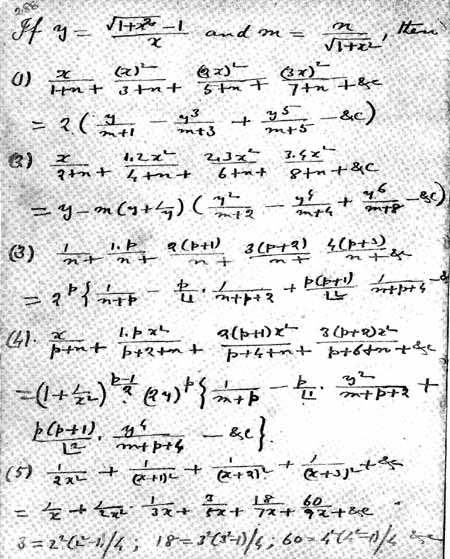 286
If y = (√(1+x²) − 1)/x and m = n/√(1+x²), then
(1) x/1+n + (x)²/3+n + (2x)²/5+n + (3x)²/7+n + &c
= 2 ( y/m+1 − y³/m+3 + y⁵/m+5 − &c )
(2) x/2+n + 1.2x²/4+n + 2.3x²/6+n + 3.4x²/8+n + &c
= y − m(y + 1/y) ( y²/m+2 − y⁴/m+4 + y⁶/m+8 − &c )
(3) 1/n + 1.p/n + 2(p+1)/n + 3(p+2)/n + 4(p+3)/n + &c
= 2^p { 1/n+p − p/⌊1 . 1/n+p+2 + p(p+1)/⌊2 . 1/n+p+4 − &
(4). x/p+n + 1.p x²/p+2+n + 2(p+1)x²/p+4+n + 3(p+2)x²/p+6+n + &c
= (1 + 1/x²)^(p−1)/2 (2y)^p { 1/m+p − p/⌊1 . y²/m+p+2 +
p(p+1)/⌊2 . y⁴/m+p+4 − &c }.
(5) 1/2x² + 1/(x+1)² + 1/(x+2)² + 1/(x+3)² + &c
= 1/x + 1/2x² . 1/3x + 3/5x + 18/7x + 60/9x + &c
3 = 2²(2²−1)/4 ; 18 = 3²(3²−1)/4 ; 60 = 4²(4²−1)/4 &c